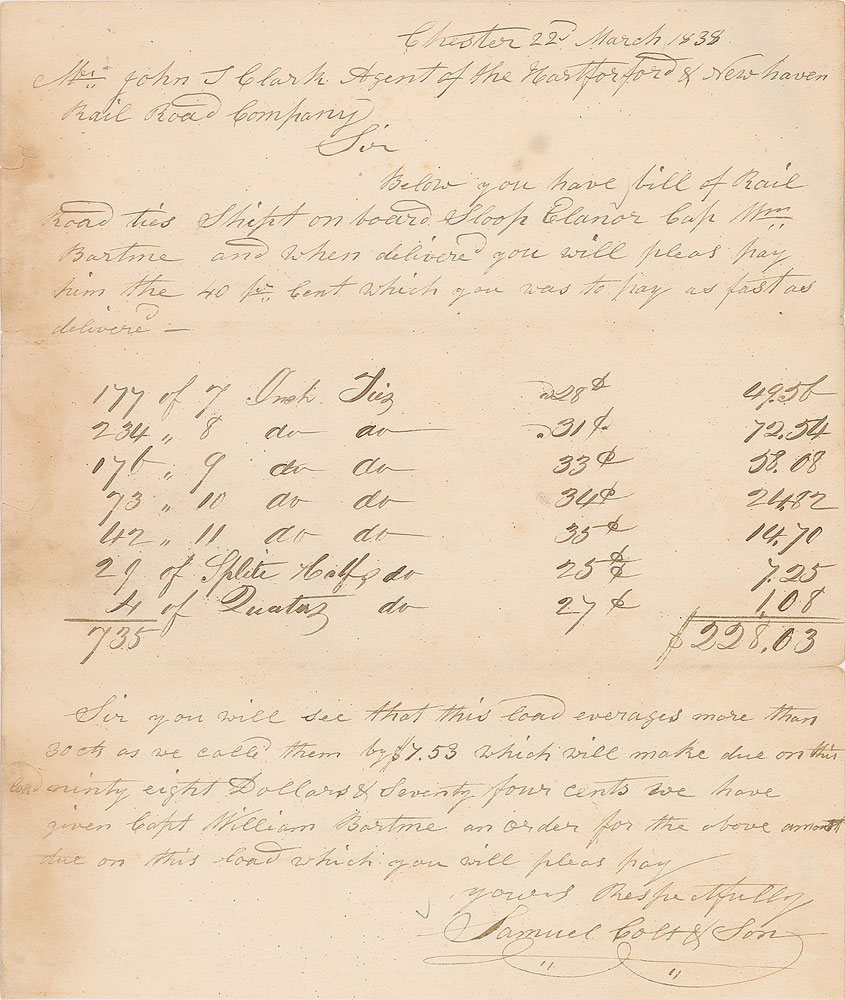 Chester 22d March 1838
Mr. John S Clark Agent of the Hartforford & Newhaven
Rail Road Company
Sir
Below you have bill of Rail
Road ties Shipt on board Sloop Elanor Cap Wm
Bartme and when delivered you will pleas pay
him the 40 pr Cent which you was to pay as fast as
delivered —
177 of 7 Inch Ties 28¢ 49.56
234 " 8 do do 31¢ 72.54
176 " 9 do do 33¢ 58.08
73 " 10 do do 34¢ 24.82
42 " 11 do do 35¢ 14.70
29 of Split Halfs do 25¢ 7.25
4 of Quaters do 27¢ 1,08
735 $228.03
Sir you will see that this load everages more than
30 cts as we calld them by $7.53 which will make due on this
load ninty eight Dollars & Seventy four cents we have
given Capt William Bartme an order for the above amount
due on this load which you will pleas pay
yours Respectfully
Samuel Colt & Son